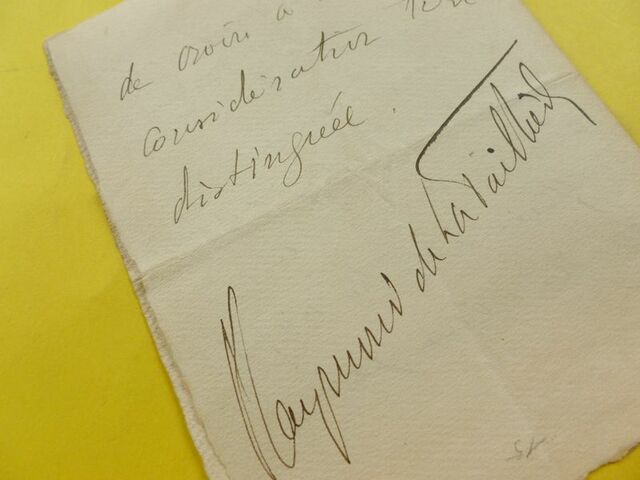 de croire à
considération très
distinguée.
Raymond de La Tailhède
15